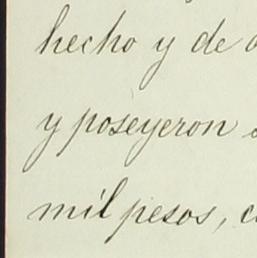 hecho y de
y poseyeron
mil pesos,